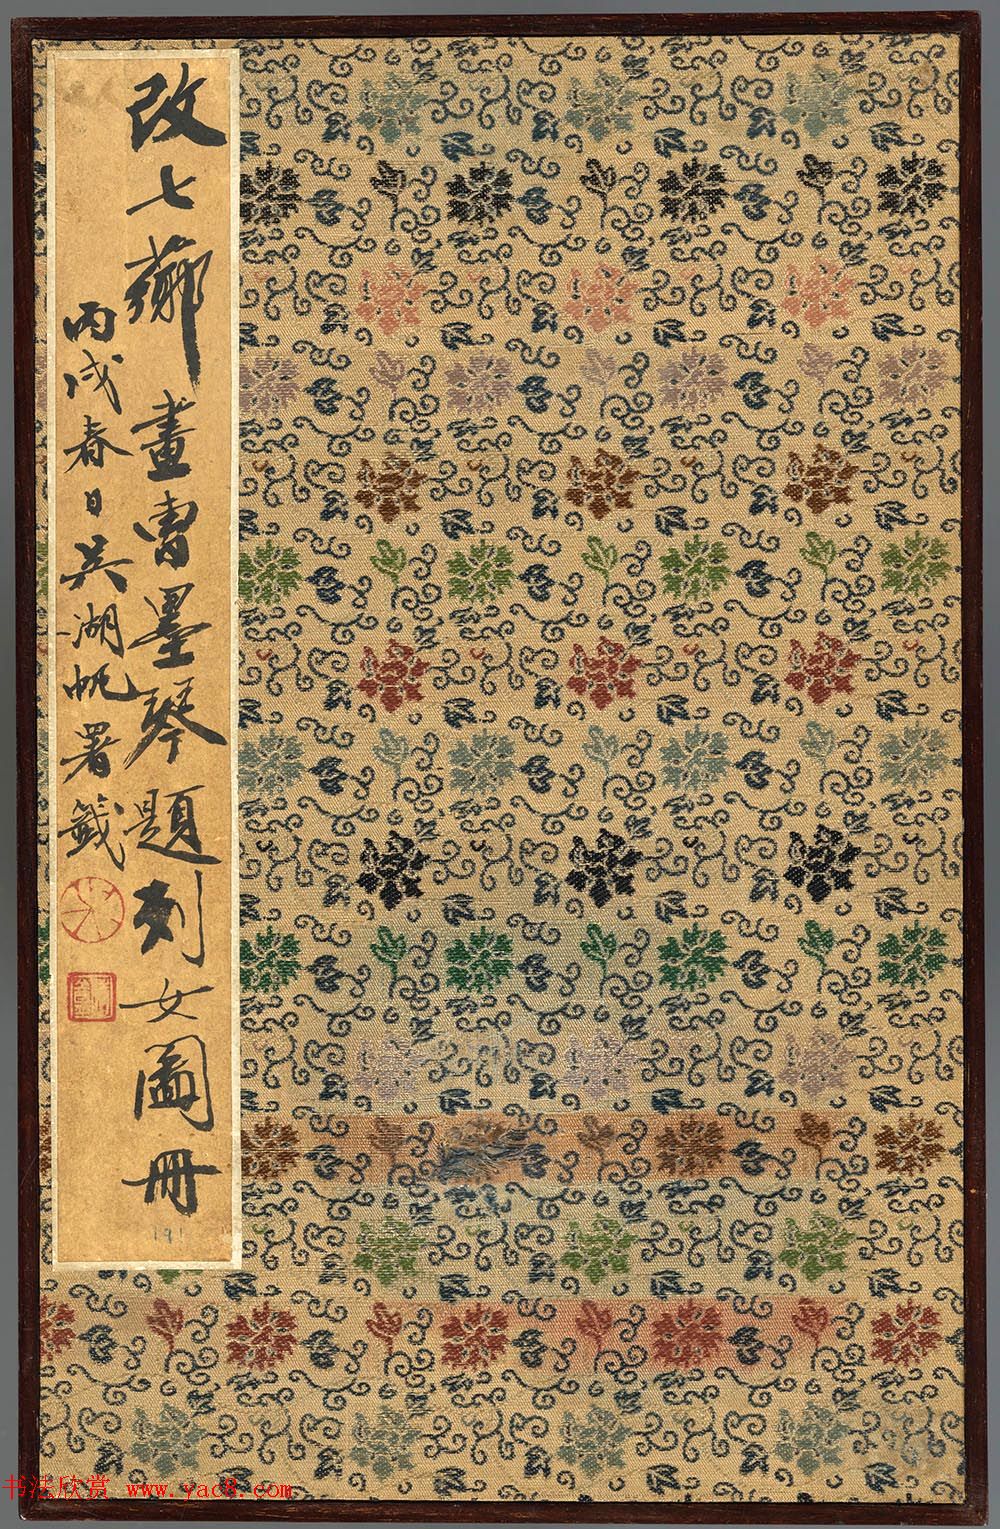 改七薌畫曹墨琴題列女圖冊
丙戌春日吳湖帆署籤
191
书法欣赏 www.yac8.com